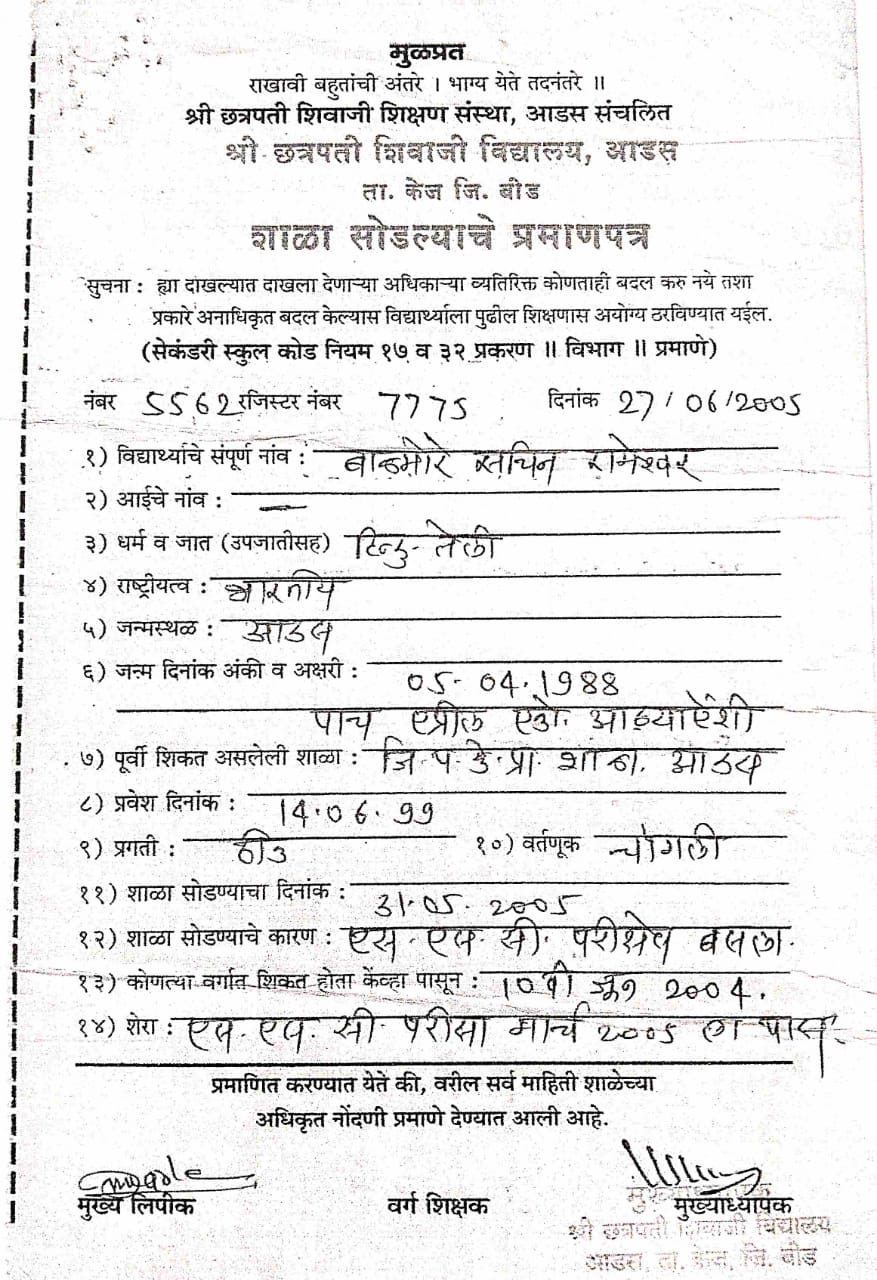 मुळप्रत
राखावी बहुतांची अंतरे । भाग्य येते तदनंतरे ॥
श्री छत्रपती शिवाजी शिक्षण संस्था, आडस संचलित
श्री छत्रपती शिवाजी विद्यालय, आडस
ता. केज जि. बीड
शाळा सोडल्याचे प्रमाणपत्र
सुचना : ह्या दाखल्यात दाखला देणाऱ्या अधिकाऱ्या व्यतिरिक्त कोणताही बदल करु नये तशा
प्रकारे अनाधिकृत बदल केल्यास विद्यार्थ्याला पुढील शिक्षणास अयोग्य ठरविण्यात यईल.
(सेकंडरी स्कुल कोड नियम १७ व ३२ प्रकरण ॥ विभाग ॥ प्रमाणे)
नंबर 5562 रजिस्टर नंबर 7775 दिनांक 27/06/2005
१) विद्यार्थ्याचे संपूर्ण नांव : सचिन रामेश्वर
२) आईचे नांव : —
३) धर्म व जात (उपजातीसह) हिन्दु-तेली
४) राष्ट्रीयत्व : भारतीय
५) जन्मस्थळ : आडस
६) जन्म दिनांक अंकी व अक्षरी : 05-04-1988
पाच एप्रील एको. अठ्याऐंशी
७) पूर्वी शिकत असलेली शाळा : जि.प.के.प्रा.शाळा. आडस
८) प्रवेश दिनांक : 14.06.99
९) प्रगती : ठीक १०) वर्तणूक चांगली
११) शाळा सोडण्याचा दिनांक : 31.05.2005
१२) शाळा सोडण्याचे कारण : एस.एस.सी. परीक्षेस बसला.
१३) कोणत्या वर्गात शिकत होता केंव्हा पासून : 10 वी जून 2004.
१४) शेरा : एस.एस.सी. परीक्षा मार्च 2005 ला पास.
प्रमाणित करण्यात येते की, वरील सर्व माहिती शाळेच्या
अधिकृत नोंदणी प्रमाणे देण्यात आली आहे.
मुख्य लिपीक वर्ग शिक्षक मुख्याध्यापक
मुख्याध्यापक
श्री छत्रपती शिवाजी विद्यालय
आडस, ता. केज, जि. बीड